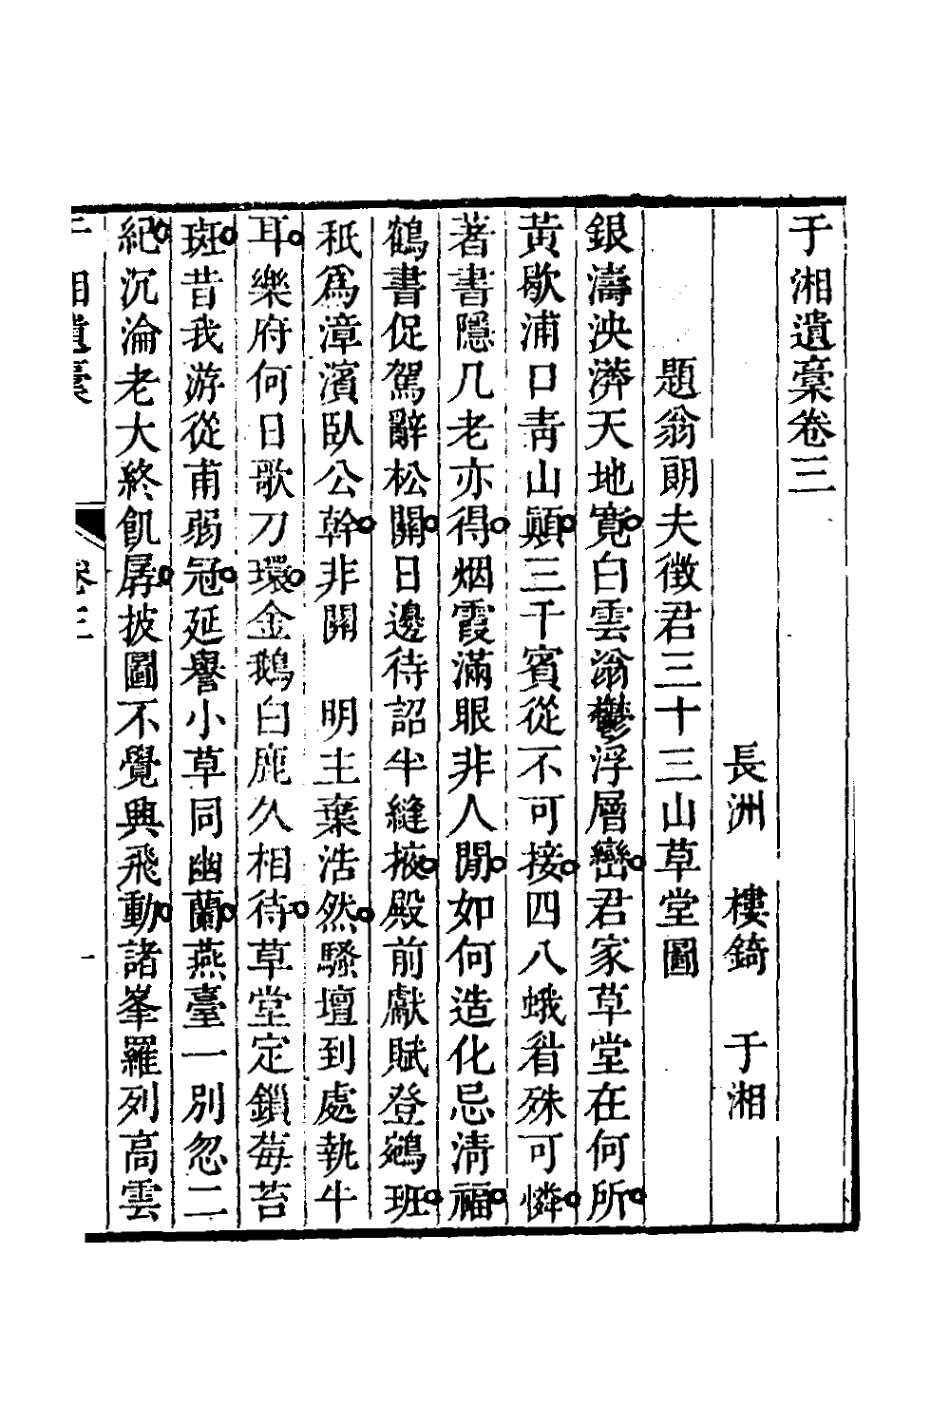 于湘遺稾卷三
長洲 樓錡 于湘
題翁朗夫徵君三十三山草堂圖
銀濤泱漭天地寬白雲滃鬱浮層巒君家草堂在何所
黃歇浦口靑山顚三千賓從不可接四八蛾眉殊可憐
著書隱几老亦得烟霞滿眼非人閒如何造化忌淸福
鶴書促駕辭松關日邊待詔半縫掖殿前獻賦登鵷班
秖爲漳濱臥公幹非關 明主棄浩然騷壇到處執牛
耳樂府何日歌刀環金鵝白鹿久相待草堂定鎖莓苔
斑昔我游從甫弱冠延譽小草同幽蘭燕臺一別忽二
紀沉淪老大終飢孱披圖不覺興飛動諸峯羅列高雲
于湘遺稾 卷三 一